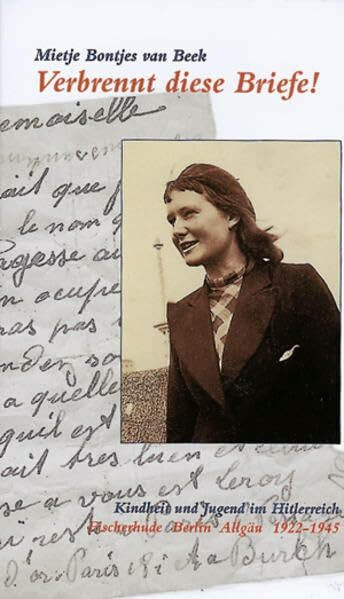 Mietje Bontjes van Beek
Verbrennt diese Briefe!
emoiselle
ait que p
le nom q
agesse au
n ocupe
ras pas
nder so
a quelle
quil est
ait tres bien et
se a vous est Leroy
i reste
d'or Paris 18
Kindheit und Jugend im Hitlerreich
Fischerhude Berlin Allgäu 1922-1945